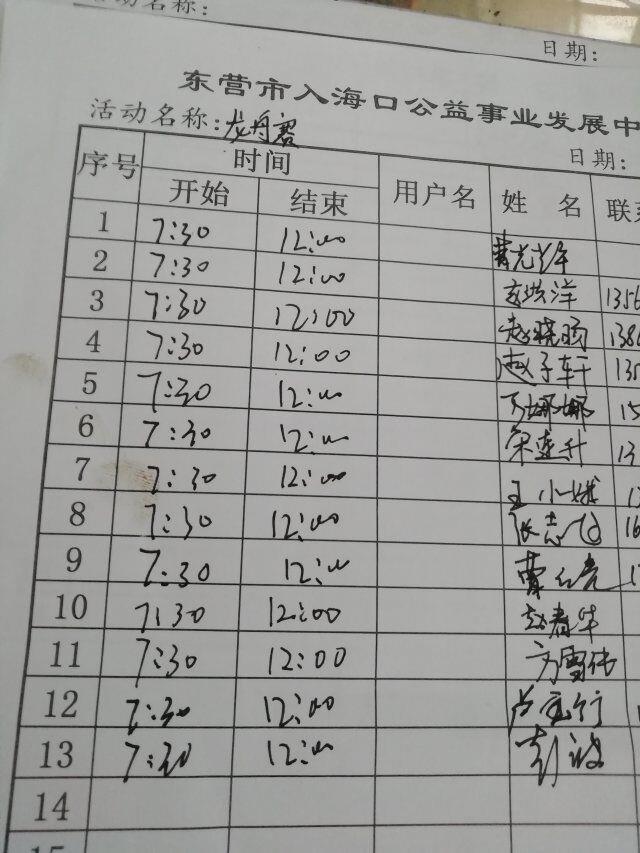 活动名称:
日期:
东营市入海口公益事业发展中
活动名称:龙舟赛
日期:
序号 时间 用户名 姓 名 联系
开始 结束
1 7:30 12:00
2 7:30 12:00 1356
3 7:30 12:00 赵晓旸 138
4 7:30 12:00 赵子轩 135
5 7:30 12:00 15
6 7:30 12:00 宋连升 13
7 7:30 12:00 王小娥 1
8 7:30 12:00 16
9 7:30 12:00 1
10 7:30 12:00 赵春华
11 7:30 12:00 方雪伟
12 7:30 12:00
13 7:30 12:00 彭波
14
15